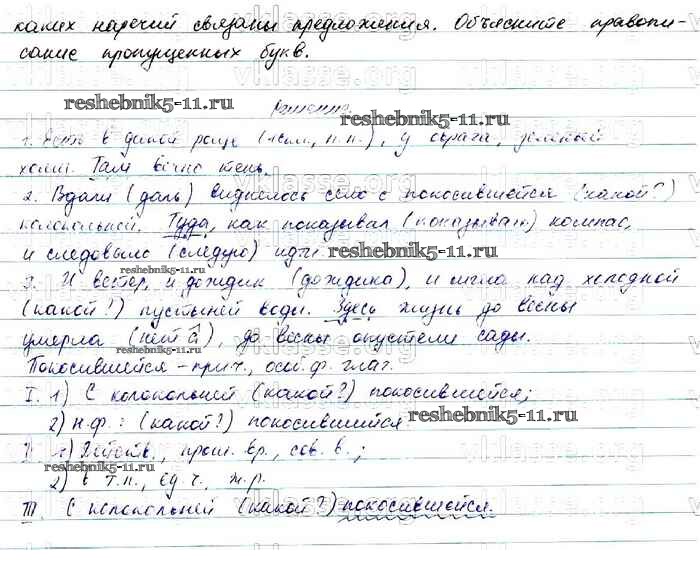 каких наречий связаны предложения. Объясните правопи-
сание пропущенных букв.
reshebnik5-11.ru
Решение.
1. Есть в дикой роще (, п.п.), у оврага, зеленый
холм. Там вечно тень.
2. Вдали (даль) виднелось село с покосившейся (какой?)
колокольней. Туда, как показывал (показываю) компас,
и следовало (следую) идти.
3. И ветер, и дождик (дождика), и мгла над холодной
(какой?) пустыней воды. Здесь жизнь до весны
умерла (нет а), до весны опустели сады.
Покосившейся – прич., особ. ф. глаг.
I. 1) С колокольней (какой?) покосившейся;
2) н.ф.: (какой?) покосившийся.
1) Действ., прош. вр., сов. в.;
2) в т.п., ед.ч., ж.р.
III. С колокольней (какой?) покосившейся.